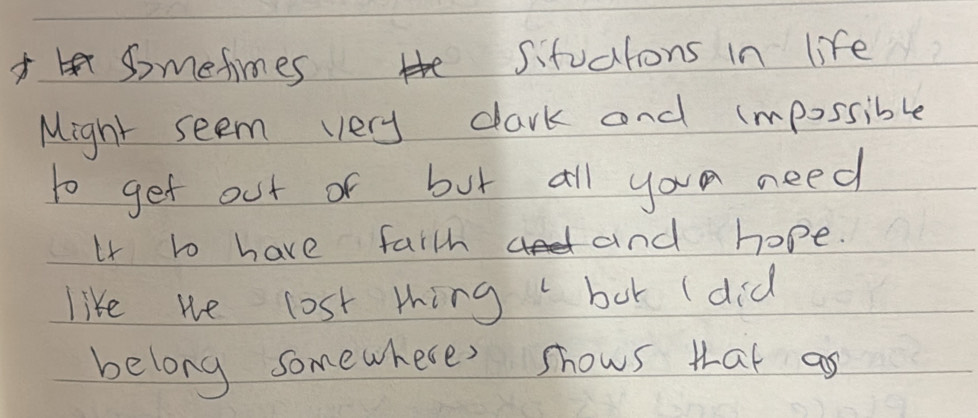 * Sometimes situations in life
Might seem very dark and impossible
to get out of but all you need
it to have faith and hope.
like the lost thing ' but I did
belong somewhere' shows that as